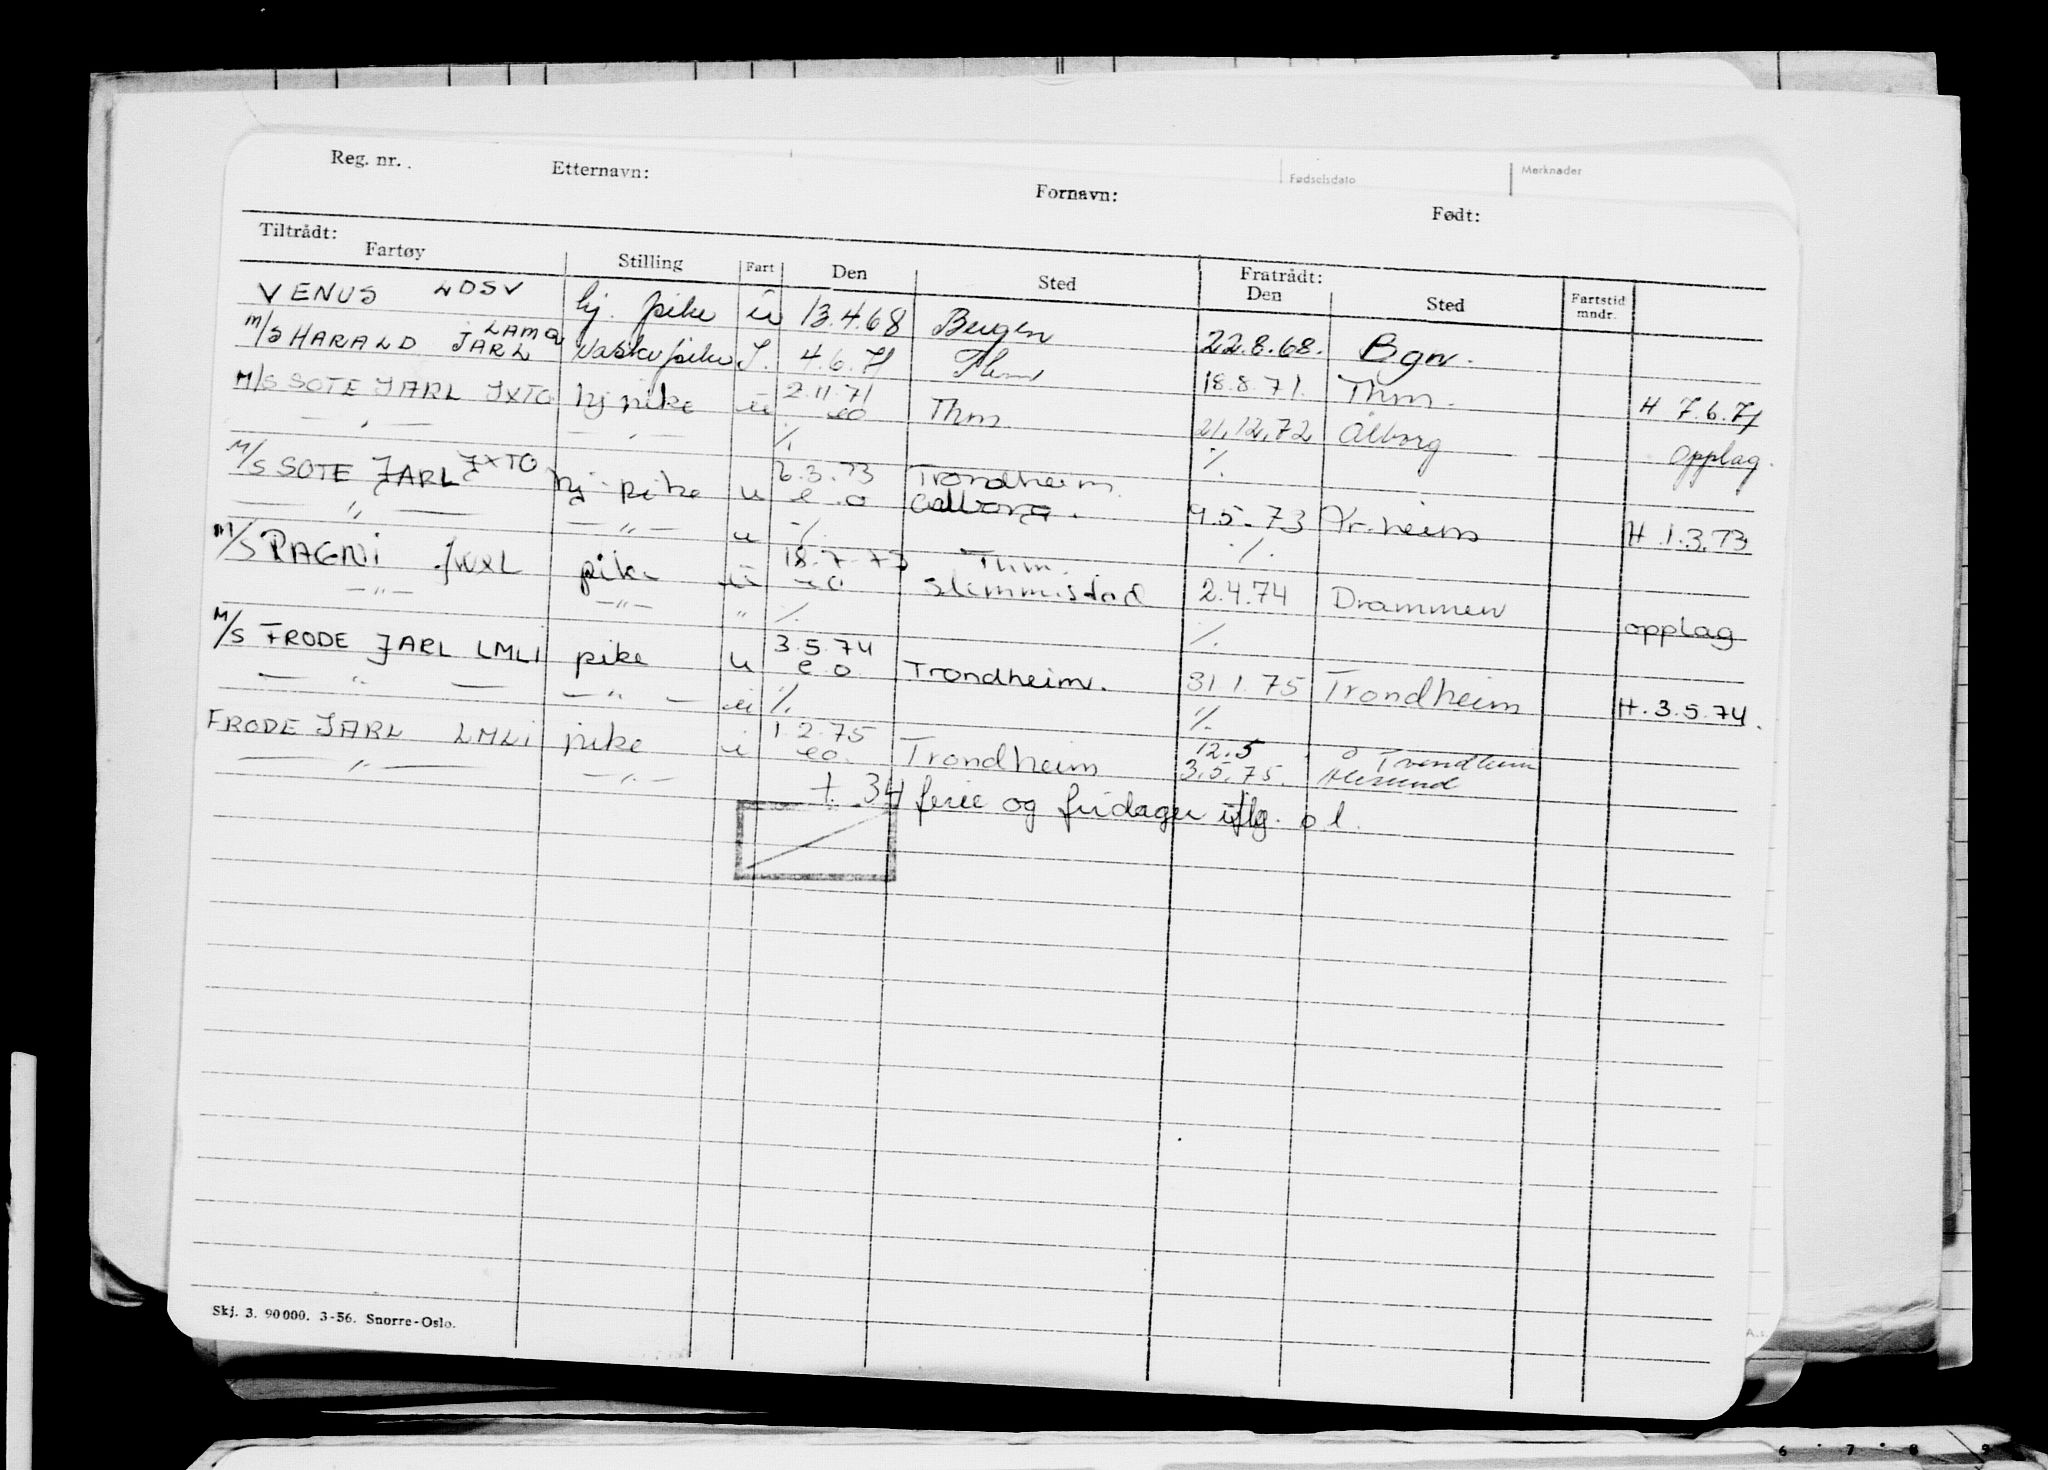 Reg. nr. Etternavn: Fornavn: Fødselsdato Født: Merknader
Tiltrådt: Fratrådt:
Fartøy Stilling Fart Den Sted Den Sted Fartstid mndr.
VENUS LDSV hj. pike u 13.4.68 Bergen 22.8.68. Bgn.
M/S HARALD JARL LAMQ Vaskepike I. 4.6.71 Thm 18.8.71. Thm. H 7.6.71
M/S SOTE JARL JXTO hj pike u 2.11.71 eo Thm. 21.12.72 Ålborg opplag.
— " — — " — ./. ./.
M/S SOTE JARL JXTO hj pike u 6.3.73 e.o Trondheim. Aalborg. 9.5.73 Tr.heim H 1.3.73
— " — — " — u ./. ./.
M/S RAGNI JWXL pike u 18.7.73 eo Thm. Slemmestad 2.4.74 Drammen opplag
— " — — " — " ./. ./.
M/S FRODE JARL LMLI pike u 3.5.74 e.o. Trondheim. 31.1.75 Trondheim H. 3.5.74.
— " — — " — u ./. ./.
FRODE JARL LMLI pike i 1.2.75 eo. Trondheim 12.5 3.5.75. Trondheim Ålesund
— " — — " —
+ 34 ferie og fridager iflg. o l.
Skj. 3. 90000. 3-56. Snorre-Oslo.
6 · 7 · 8 9